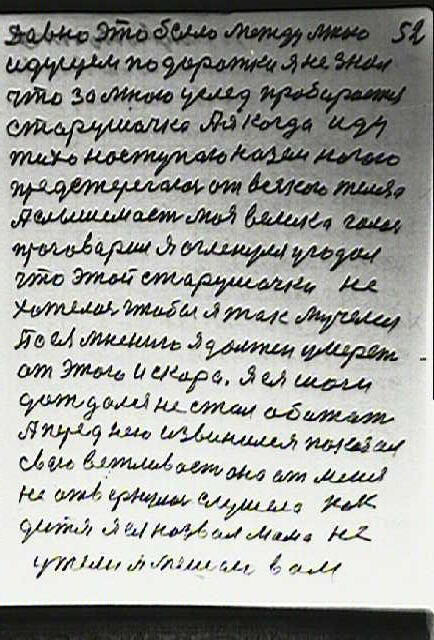 давно это было между мною 52
идущем по дорожки я не знал
что за мною услед пробирается
старушачка А я когда иду
тихо наступаю на зем ногою
предстерегался от всякого тела
А слышемаст моя велика голос
проговарил я огленулся угодал
что этой старушачки не
хотелос чтобы я так мучелся
по ея мнению я должен умерет
от этого и скора. я ея шаги
дождался не стал обижат
А перед нею извинился показал
сваю вежливаст она от меня
не отвернулас слушела как
дитя я ея назвал мама не
ужели я мешаю вам